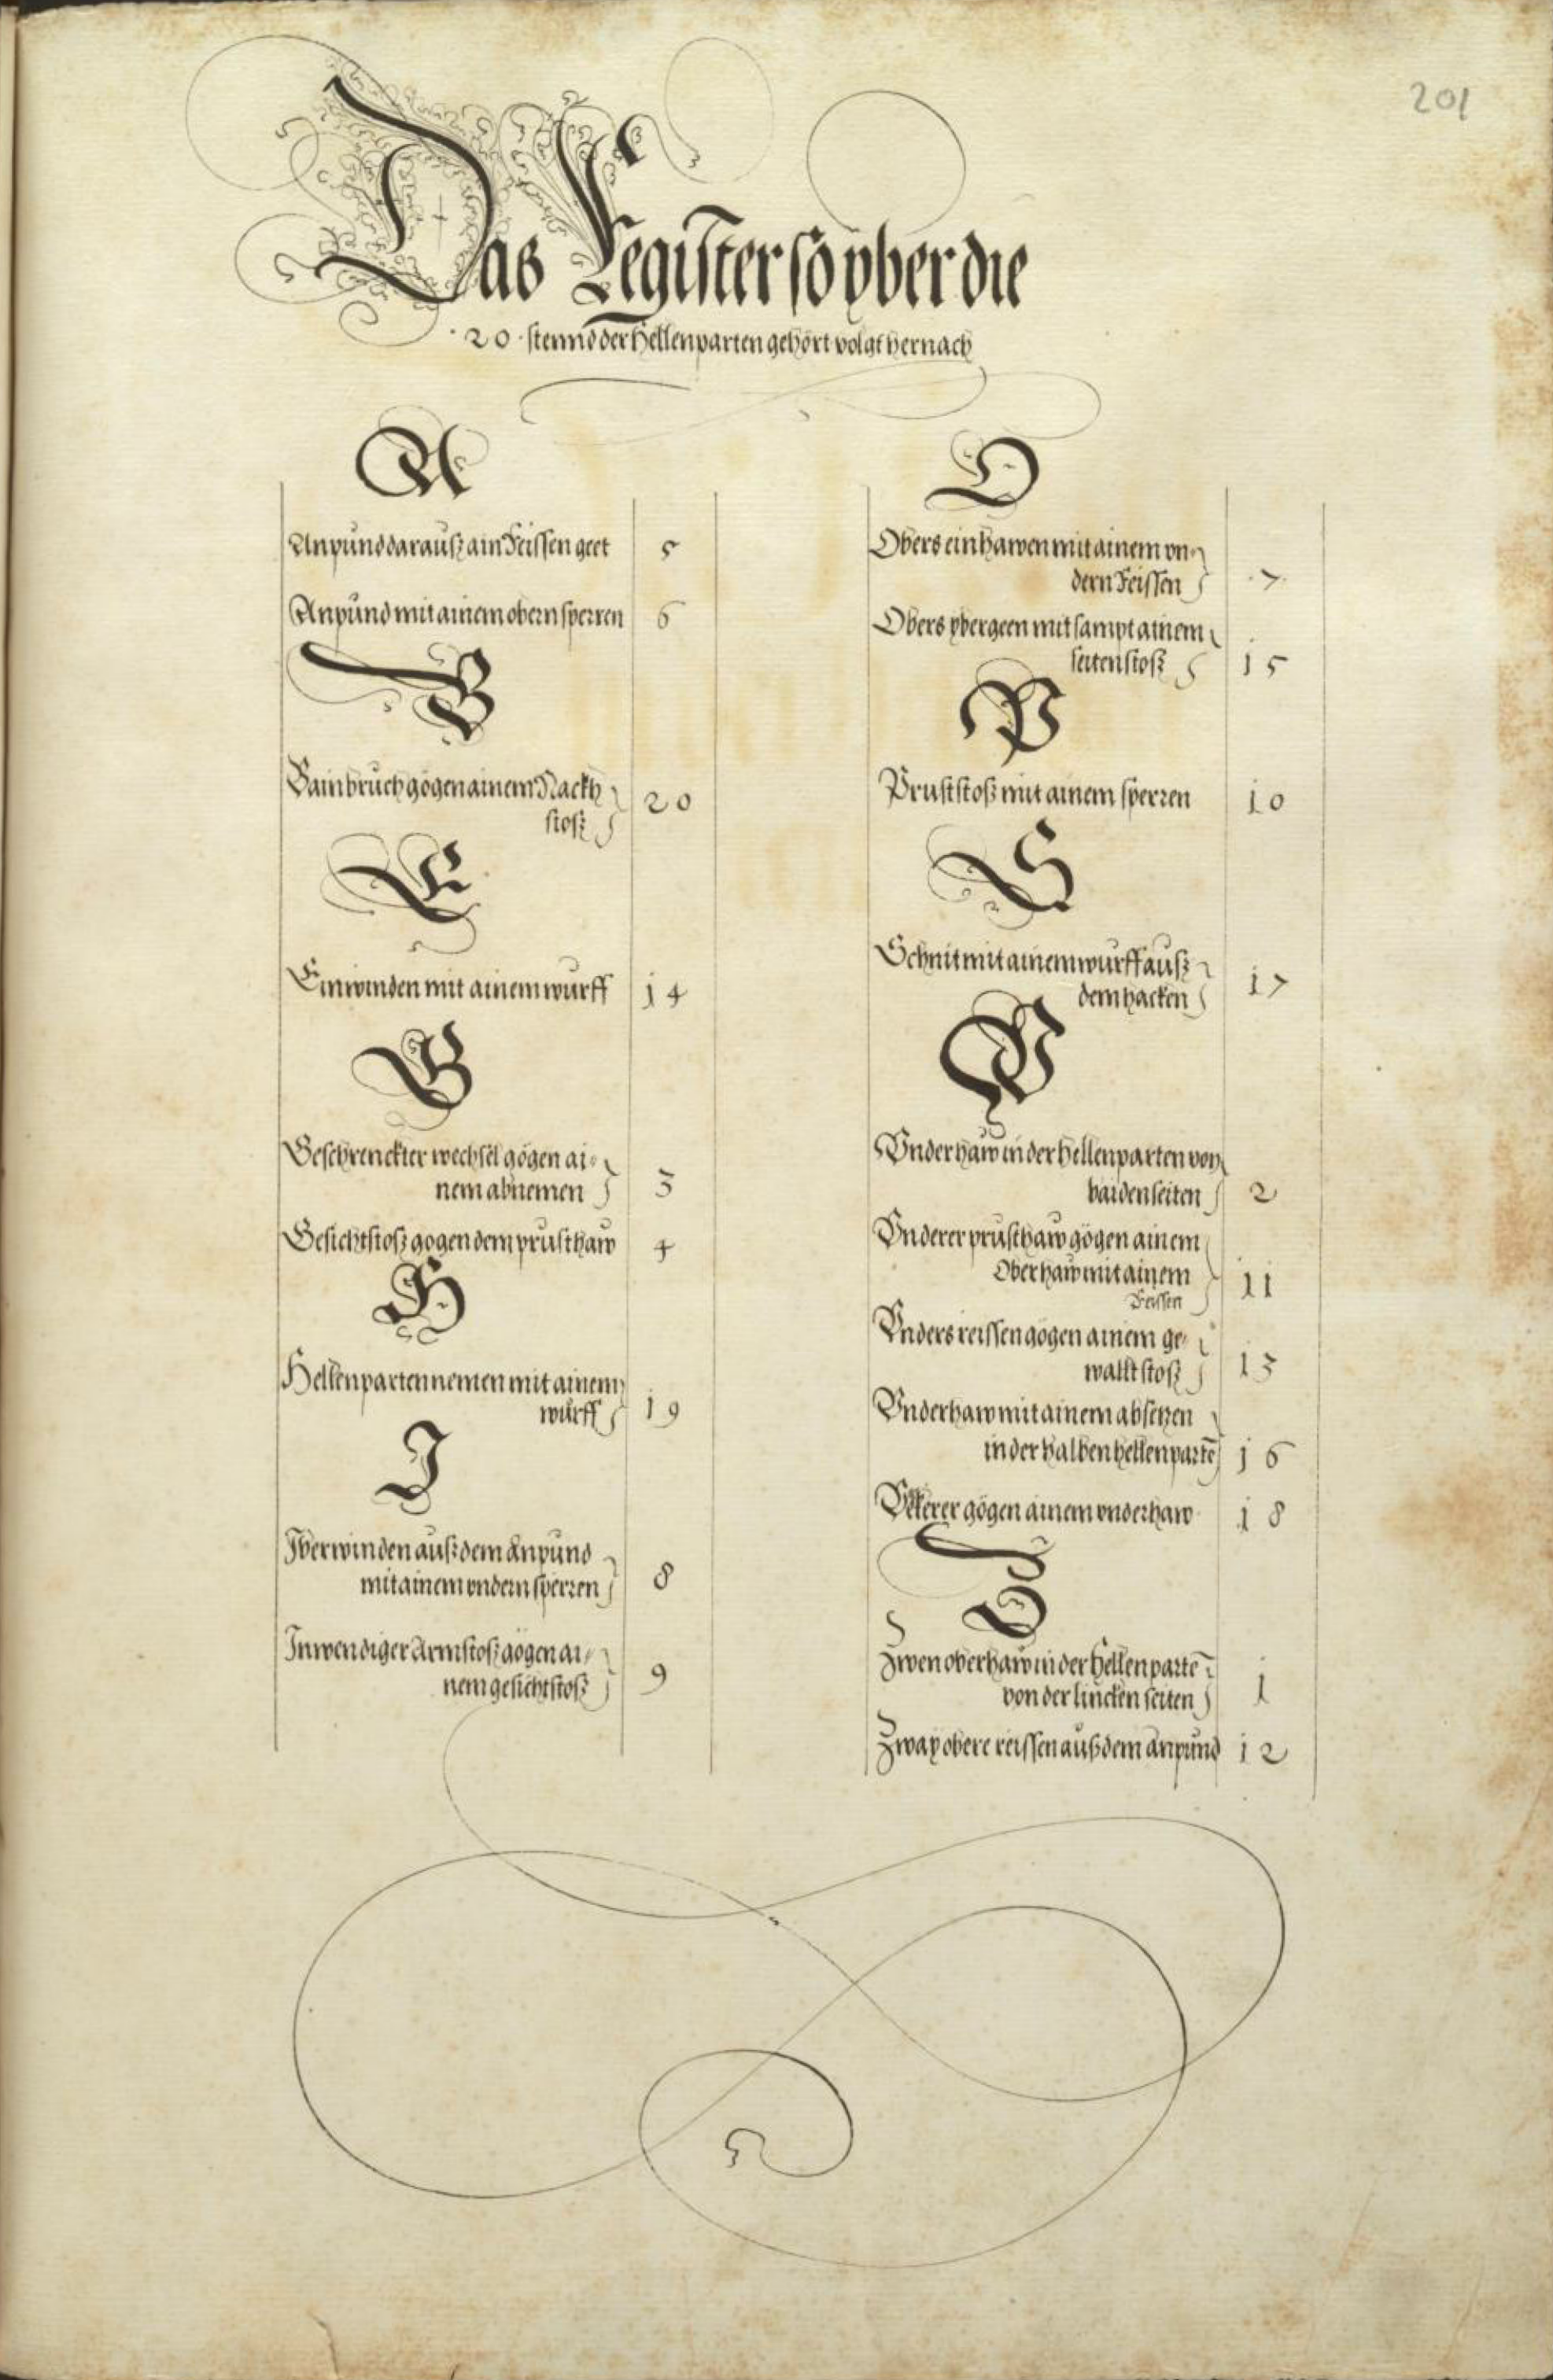 201
Das Register so yber die
20 stennd der Hellenparten gehört volgt hernach
A
Anpund darauß ain Feissen geet 5
Anpund mit ainem obern sperren 6
B
Bainbruch gögen ainem Nackh
stoß 20
E
Einwinden mit ainem wurff 14
G
Geschrenckter wechsel gögen ai-
nem abnemen 3
Gesichtstoß gögen dem prusthaw 4
H
Hellenparten nemen mit ainem
wurff 19
I
Iberwinden auß dem Anpund
mit ainem undern sperren 8
Inwendiger Armstoß gögen ai-
nem gesichtstoß 9
O
Obers einhawen mit ainem vn-
dern Feissen 7
Obers ybergeen mit sampt ainem
seitenstoß 15
P
Pruststoß mit ainem sperren 10
S
Schnit mit ainem wurff auß
dem hacken 17
V
Vnderhaw in der Hellenparten von
baiden seiten 2
Vnderer prusthaw gögen ainem
Oberhaw mit ainem
Feissen 11
Vnders reissen gögen ainem ge-
walltstoß 13
Vnderhaw mit ainem absetzen
in der halben hellenpartē 16
gögen ainem vnderhaw 18
Z
Zwen oberhaw in der Hellenpartē
von der lincken seiten 1
Zway obere reissen auß dem Anpund 12